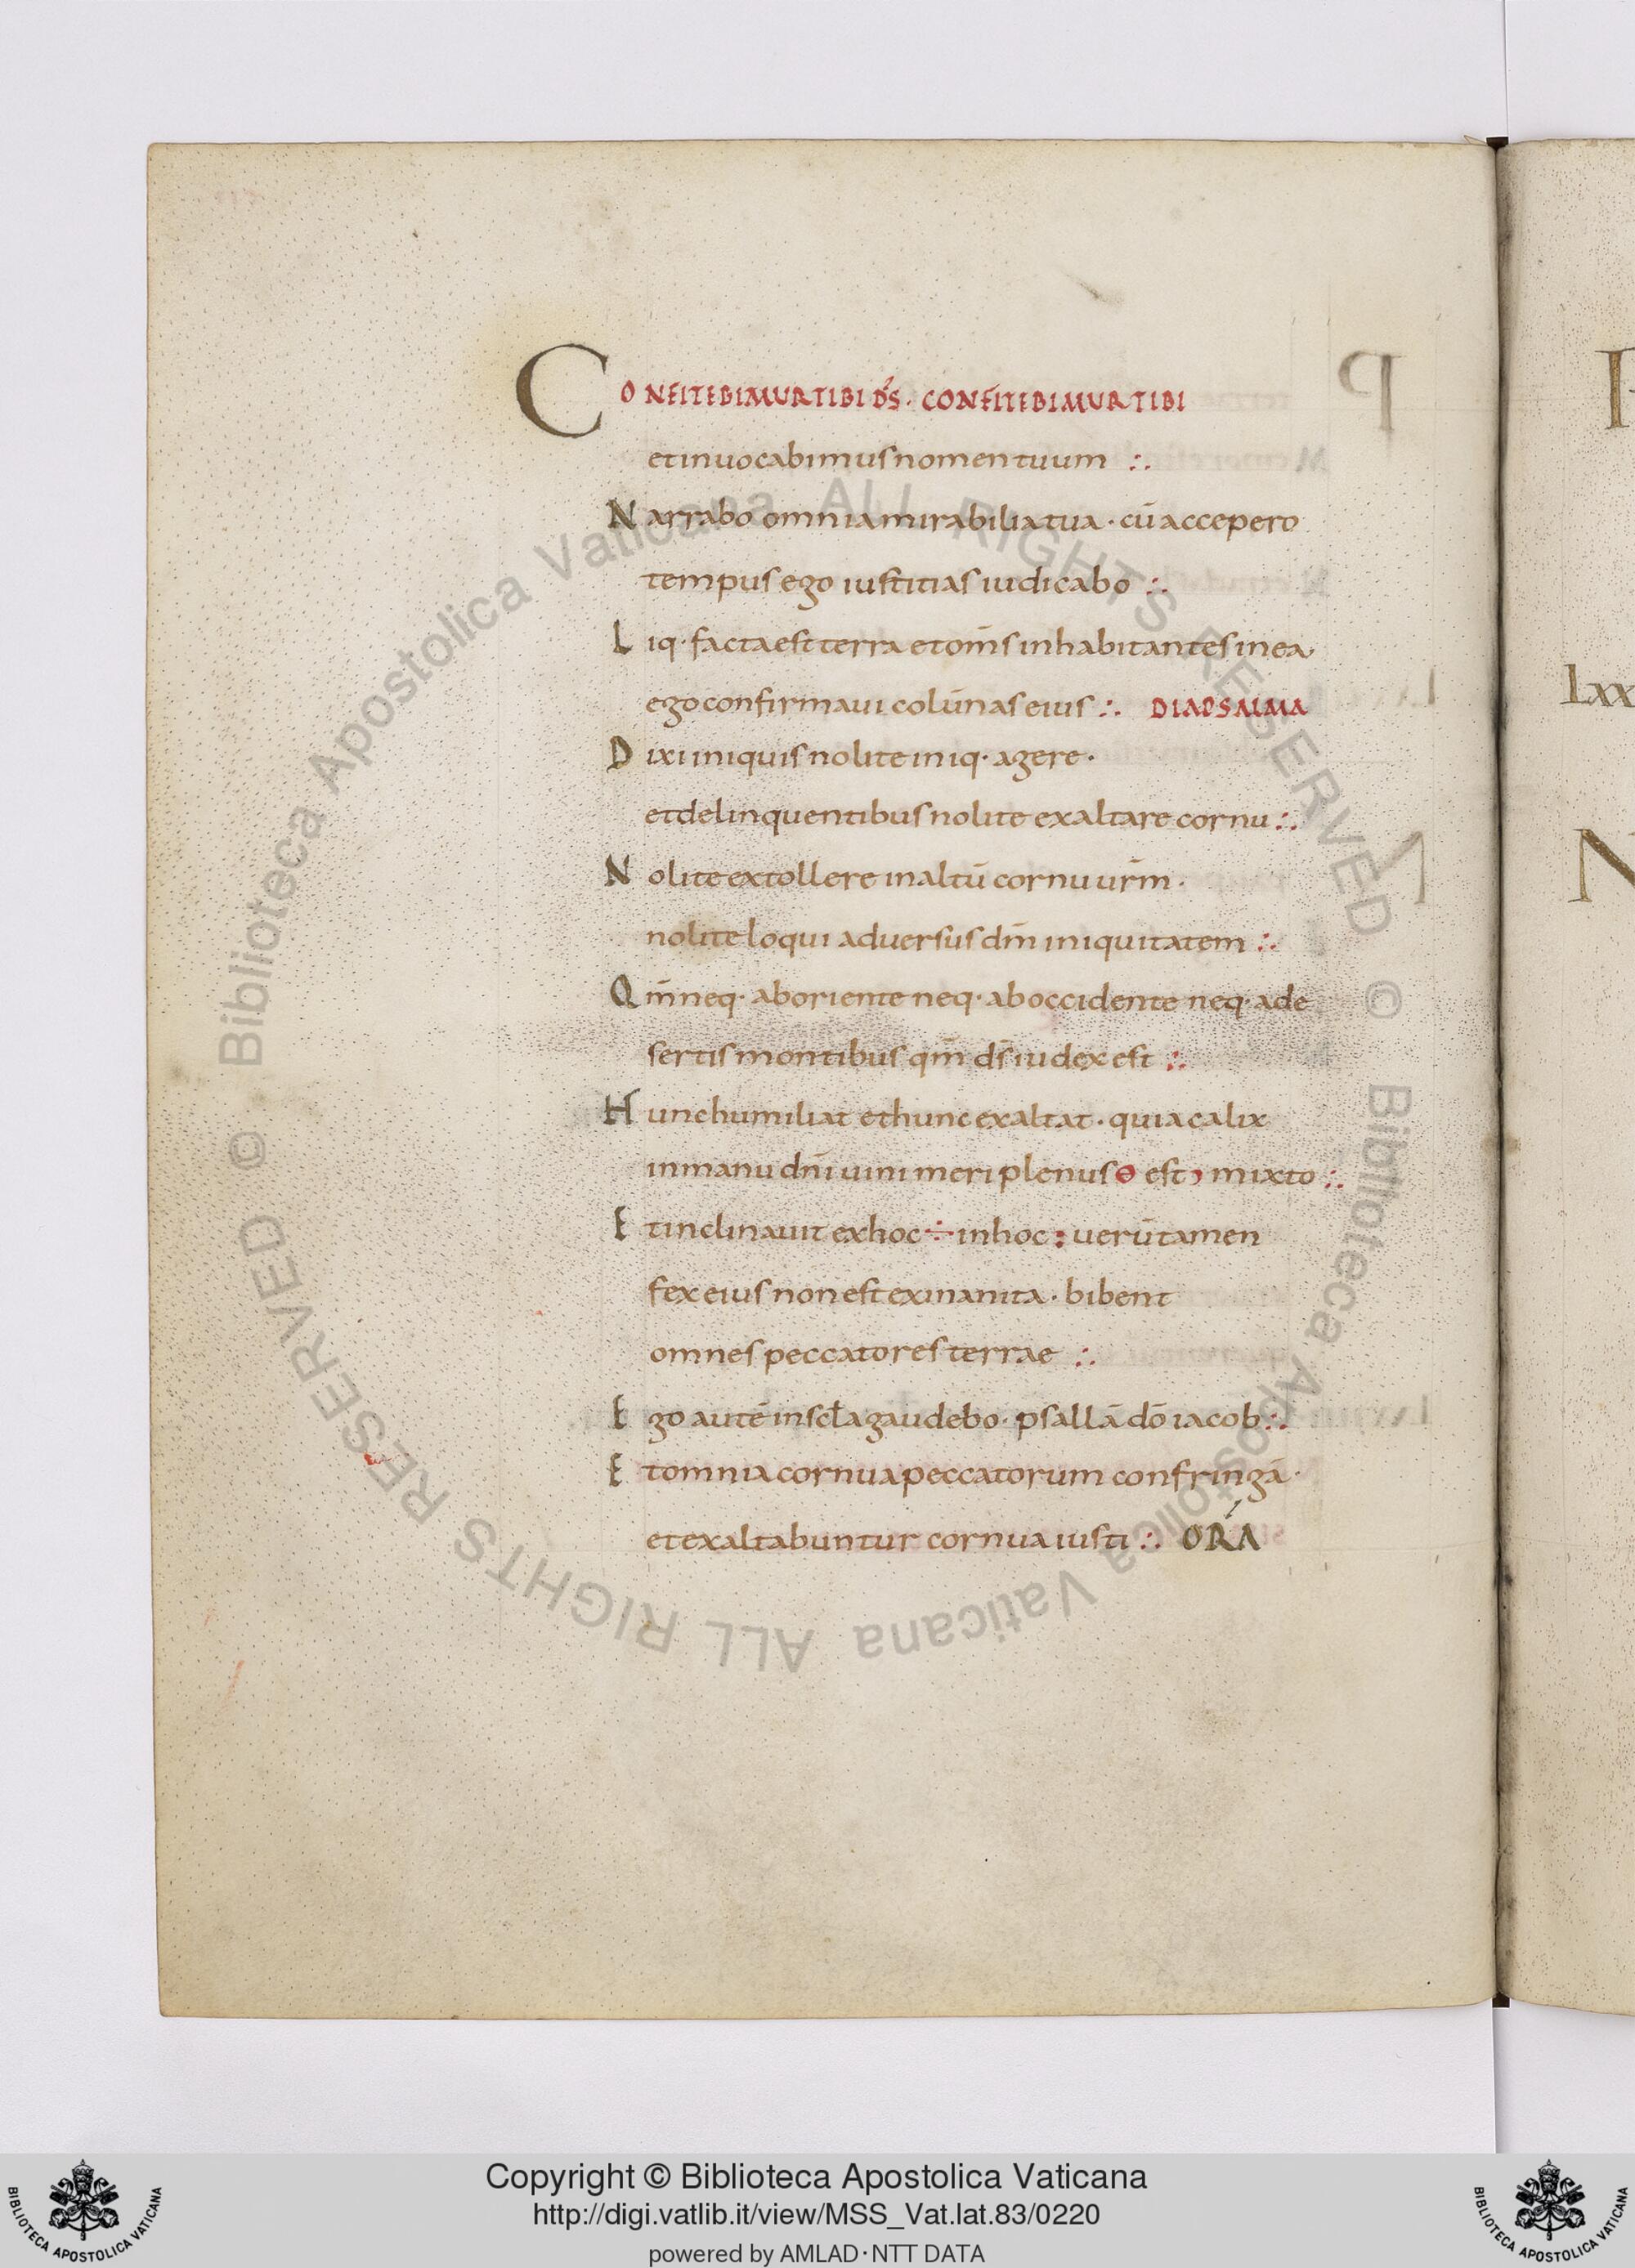 CONFITEBIMUR TIBI D̅S · CONFITEBIMUR TIBI
et inuocabimus nomen tuum :.
Narrabo omnia mirabilia tua · cū accepero
tempus ego iustitias iudicabo :.
Liq· facta est terra et om̅s inhabitantes in ea
ego confirmaui colūnas eius :. DIAPSALMA
Dixi iniquis nolite iniq· agere ·
et delinquentibus nolite exaltare cornu :.
Nolite extollere in altū cornu ur̅m ·
nolite loqui aduersus dm̅ iniquitatem :.
Qm̅ neq· ab oriente neq· ab occidente neq· a de
sertis montibus qm̅ ds̅ iudex est :.
Hunc humiliat et hunc exaltat · quia calix
in manu dn̅i uini meri plenus ɵ est, mixto :.
Et inclinauit ex hoc ÷ in hoc : uerūtamen
fex eius non est exinanita · bibent
omnes peccatores terrae :.
Ego autē in scl̅a gaudebo · psallā dō iacob :.
Et omnia cornua peccatorum confringā ·
et exaltabuntur cornua iusti :. ORA
Lxx
N
© Biblioteca Apostolica Vaticana ALL RIGHTS RESERVED © Biblioteca Apostolica Vaticana ALL RIGHTS RESERVED
Copyright © Biblioteca Apostolica Vaticana
http://digi.vatlib.it/view/MSS_Vat.lat.83/0220
powered by AMLAD·NTT DATA
BIBLIOTECA APOSTOLICA VATICANA
BIBLIOTECA APOSTOLICA VATICANA